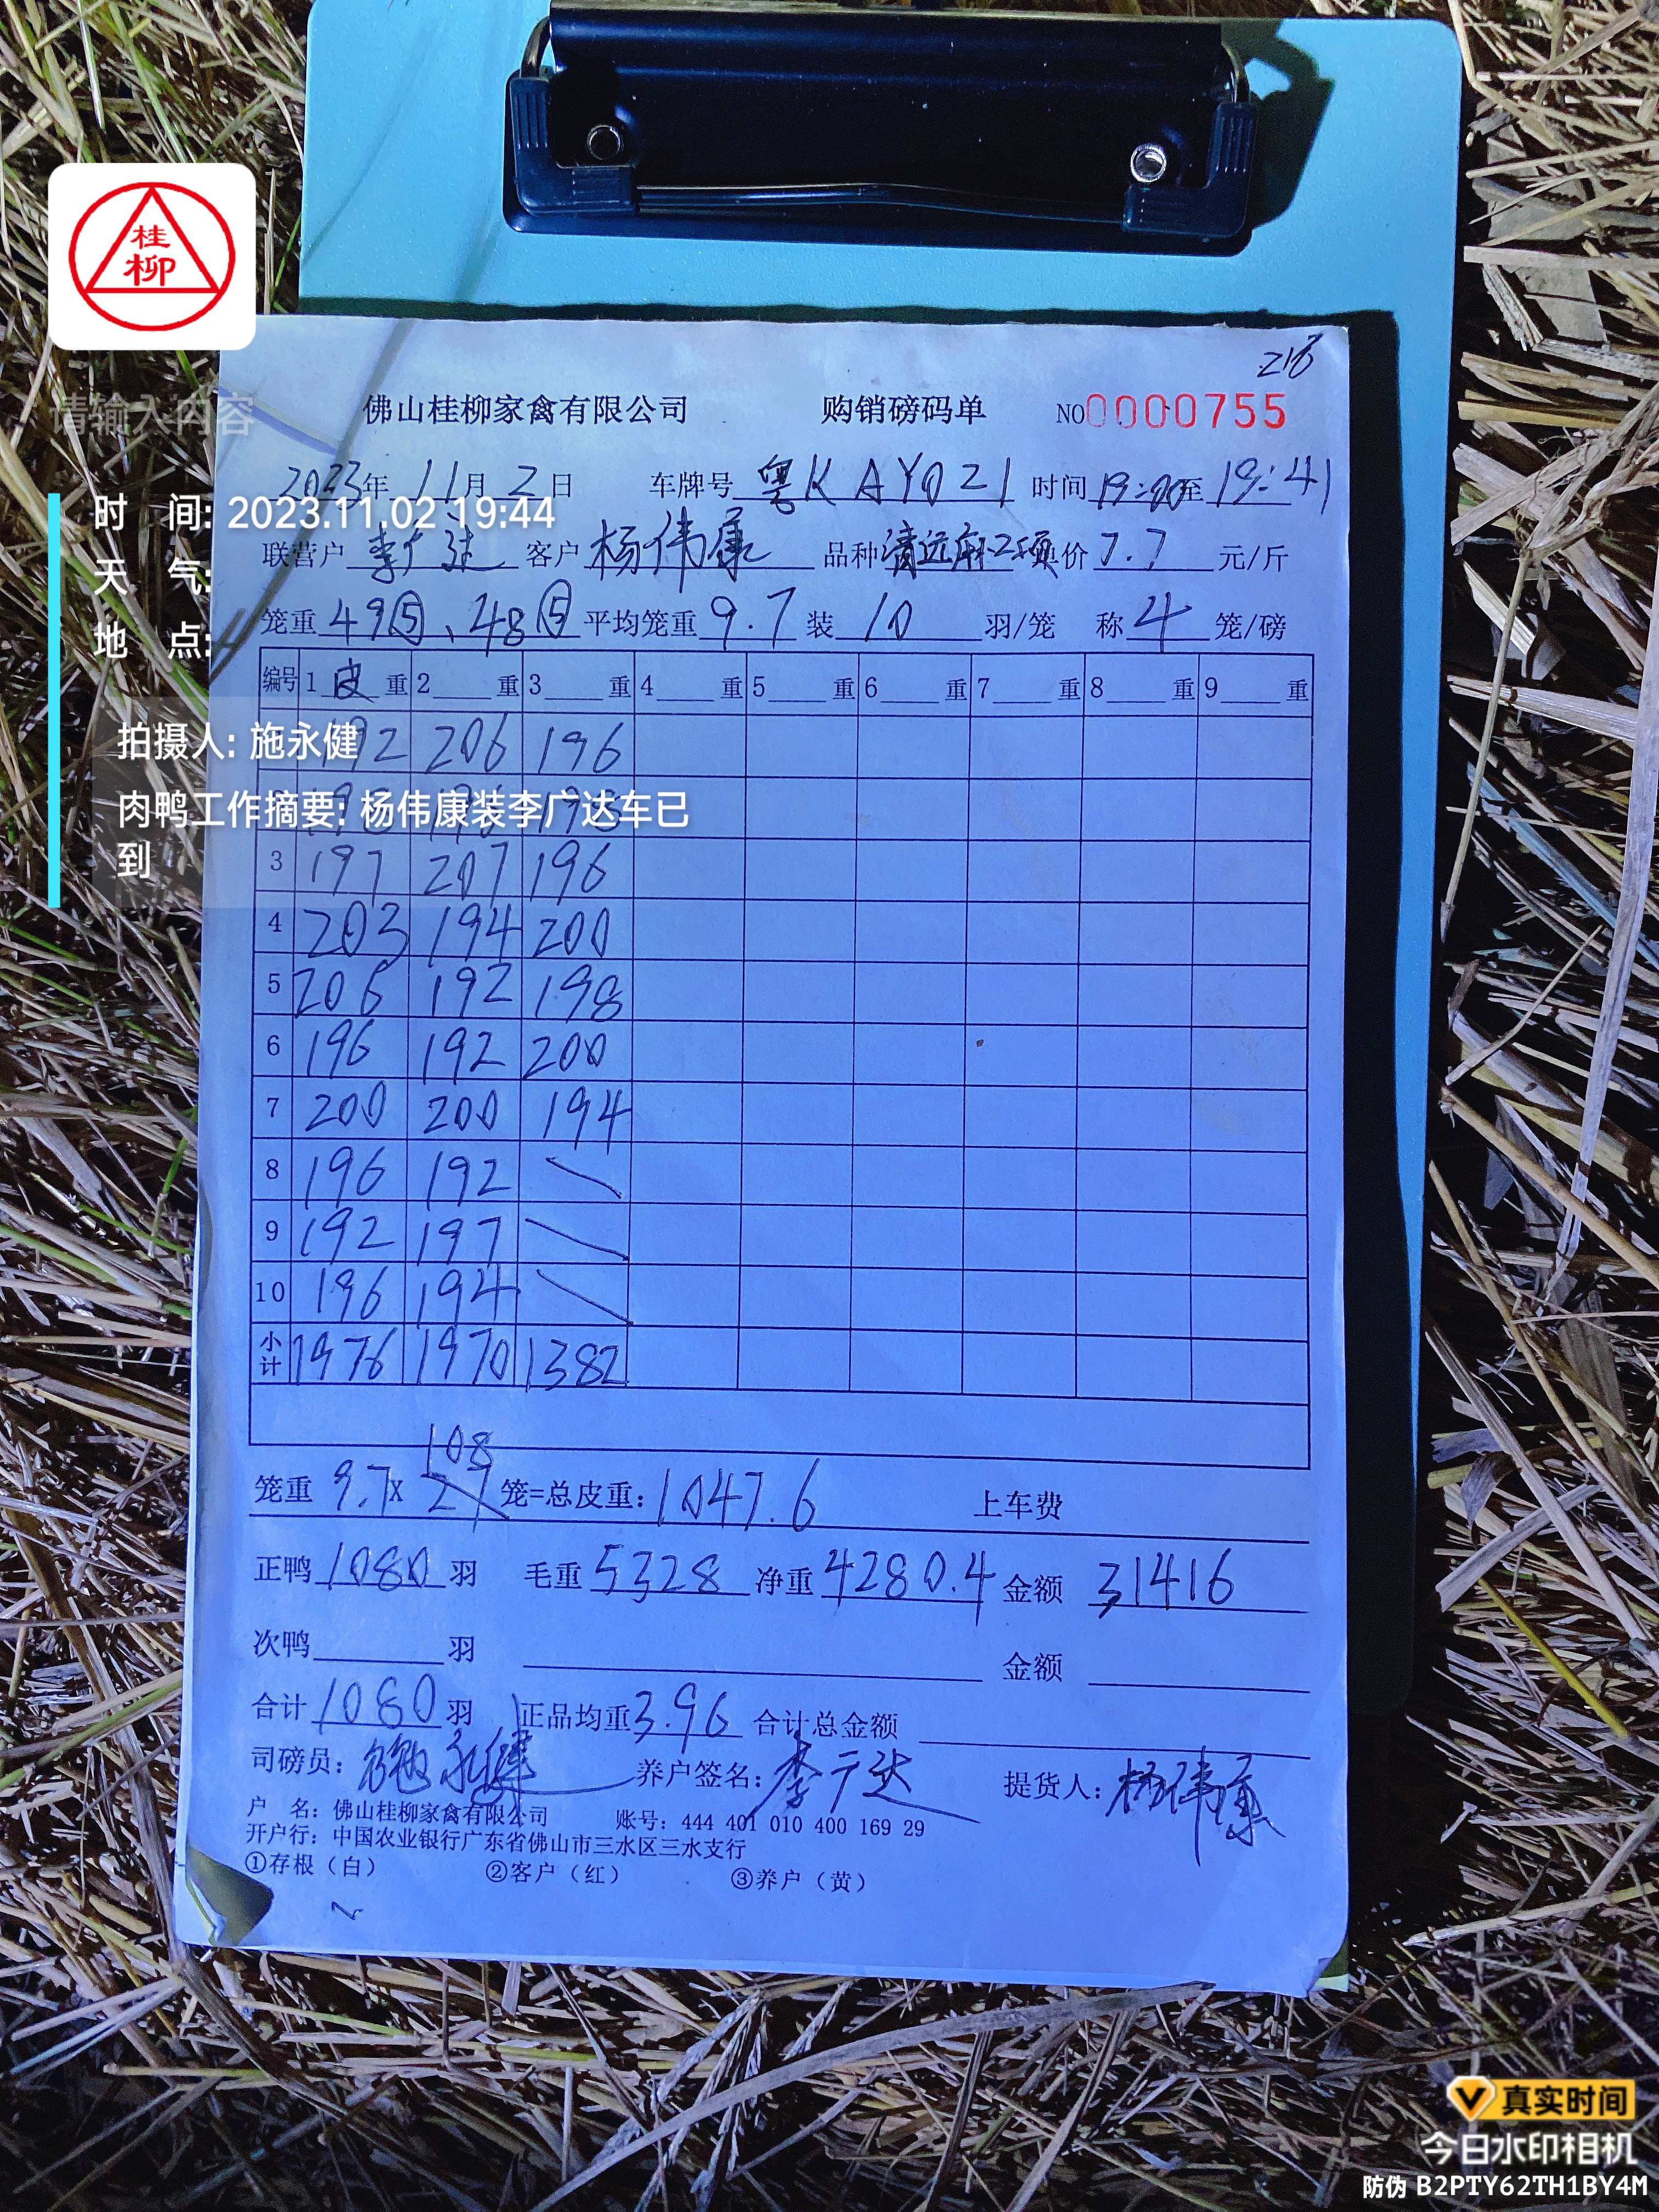 桂
柳
216
佛山桂柳家禽有限公司 购销磅码单 NO0000755
请输入内容
2023年 11月 2日 车牌号 粤KAY021 时间 19:00至 19:41
时 间: 2023.11.02 19:44
联营户 李广达 客户 杨伟康 品种 清远麻 单价 7.7 元/斤
天 气:
笼重 49⑤、48⑤ 平均笼重 9.7 装 10 羽/笼 称 4 笼/磅
地 点:
编号 1 皮 重 2 重 3 重 4 重 5 重 6 重 7 重 8 重 9 重
192 206 196
拍摄人: 施永健
肉鸭工作摘要: 杨伟康装李广达车已
到
3 197 207 196
4 203 194 200
5 206 192 198
6 196 192 200
7 200 200 194
8 196 192
9 192 197
10 196 194
小计 1976 1970 1382
108
笼重 9.7 X 27 笼=总皮重: 1047.6 上车费
正鸭 1080 羽 毛重 5328 净重 4280.4 金额 31416
次鸭 羽 金额
合计 1080 羽 正品均重 3.96 合计总金额
司磅员: 施永健 养户签名: 李广达 提货人: 杨伟康
户 名: 佛山桂柳家禽有限公司 账号: 444 401 010 400 169 29
开户行: 中国农业银行广东省佛山市三水区三水支行
①存根（白） ②客户（红） ③养户（黄）
真实时间
今日水印相机
防伪 B2PTY62TH1BY4M